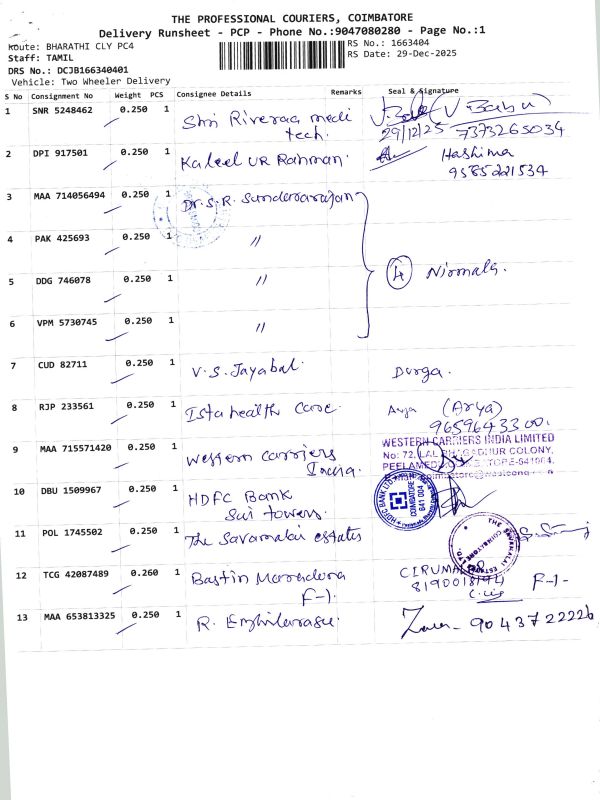 THE PROFESSIONAL COURIERS, COIMBATORE
Delivery Runsheet - PCP - Phone No.:9047080280 - Page No.:1
Route: BHARATHI CLY PC4
RS No.: 1663404
Staff: TAMIL
RS Date: 29-Dec-2025
DRS No.: DCJB166340401
Vehicle: Two Wheeler Delivery
S No Consignment No Weight PCS Consignee Details Remarks Seal & Signature
1 SNR 5248462 0.250 1 Shri Riveraa medi
tech.
V. Babu
29/12/25 7373265034
2 DPI 917501 0.250 1 Kaleel UR Rahman.
Hashima
9585221534
3 MAA 714056494 0.250 1 Dr. S.R. Sundararajan
4 PAK 425693 0.250 1 "
4 Nirmala.
5 DDG 746078 0.250 1 "
6 VPM 5730745 0.250 1 "
7 CUD 82711 0.250 1 V.S. Jayabal Durga.
8 RJP 233561 0.250 1 Ista health care. Arya (Arya)
9659643300.
9 MAA 715571420 0.250 1 Western Carriers
India.
WESTERN CARRIERS INDIA LIMITED
No: 72, LAL BAHADHUR COLONY,
10 DBU 1509967 0.250 1 HDFC Bank
Sui towers.
HDFC BANK LTD
COIMBATORE
641 004
11 POL 1745502 0.250 1 The Savamalai estates
12 TCG 42087489 0.260 1 Bastin
F-1.
8190018194
F-1-
13 MAA 653813325 0.250 1 R. Ezhilarasu.
9043722226